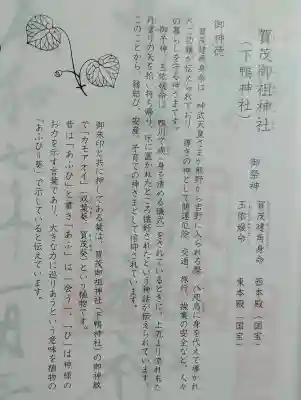 賀茂御祖神社
（下鴨神社）
御祭神
賀茂建角身命 西本殿（国宝）
玉依媛命 東本殿（国宝）
御神徳
賀茂建角身命は、神武天皇さまが熊野から吉野に入られる際、八咫烏に身を代えて導かれ
たご功績が伝えられており、導きの神として開運厄除、交通、旅行、操業の安全など、人々
の暮らしを守る神さまです。
御子神、玉依媛命は、鴨川で禊（身を清める儀式）をされているときに、上流より流れ来た
丹塗りの矢を拾い持ち帰り、床に置かれたところ懐妊されたという神話が伝えられています。
このことから、縁結び、安産、子育ての神さまとして信仰されています。
御朱印と共に押してある葉は、賀茂御祖神社（下鴨神社）の御神紋
で「カモアオイ」（双葉葵・賀茂葵）という植物です。
昔は「あふひ」と書き「あふ」は「会う」、「ひ」は神様の
お力を示す言葉であり、大きな力に巡りあうという意味を植物の
「あふひ＝葵」で示していると伝えています。